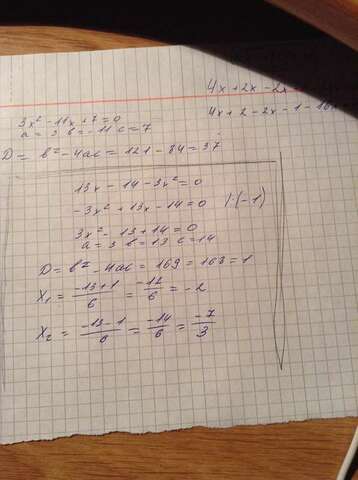 4x+2x-2x
4x+2-2x-1-16
3x²-11x+7=0
a=3 b=-11 c=7
D= b²-4ac=121-84=37
13x-14-3x²=0
-3x²+13x-14=0 |·(-1)
3x²-13+14=0
a=3 b=13 c=14
D=b²-4ac=169=168=1
X₁=-13+1/6=-12/6=-2
X₂=-13-1/6=-14/6=-7/3